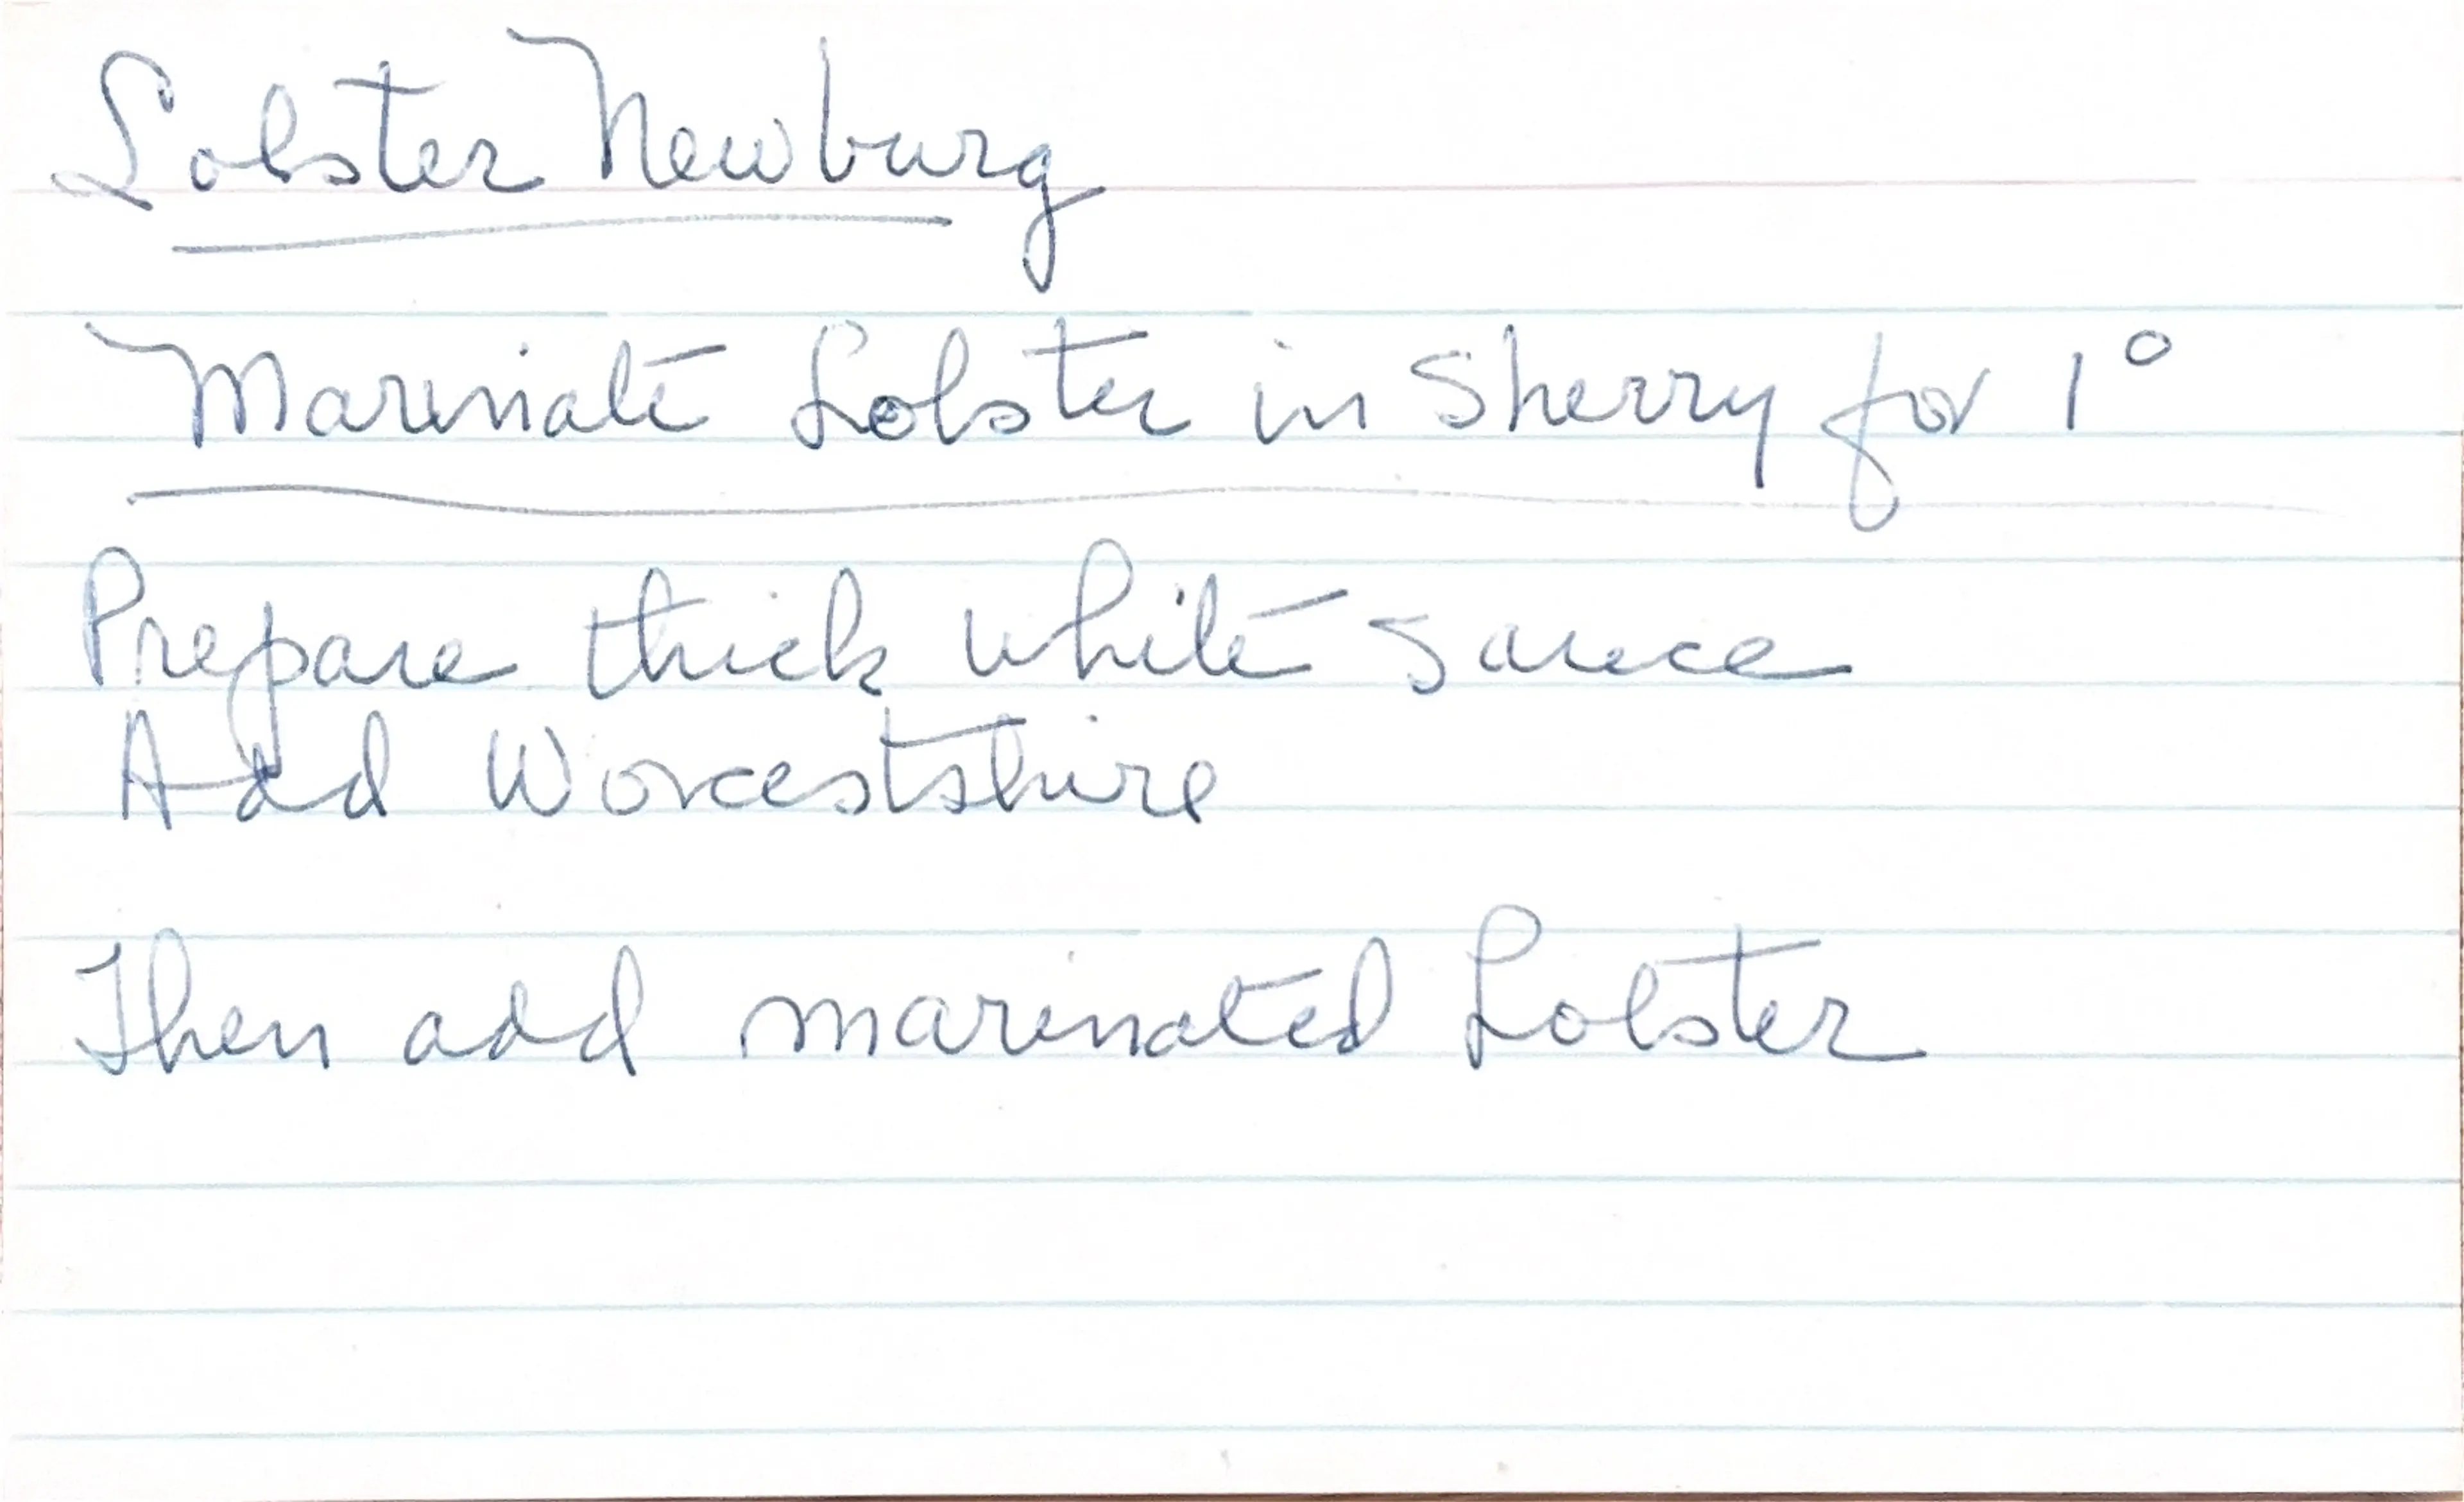 Lobster Newburg
Marinate Lobster in Sherry for 1°
Prepare thick white sauce
Add Worcestshire
Then add marinated Lobster